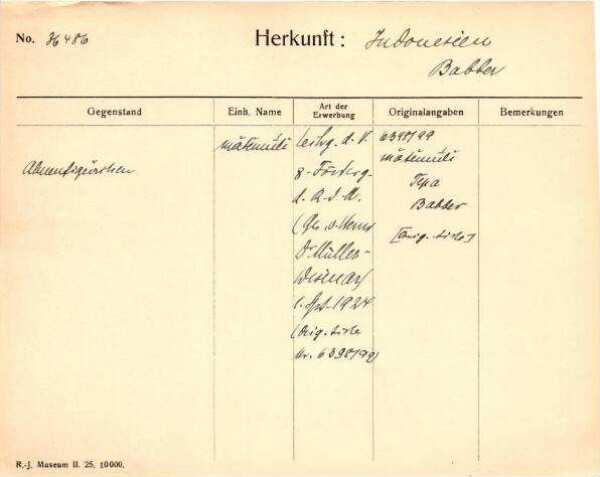 No. 36486
Herkunft: Indonesien
Babber
Gegenstand
Einh. Name
Art der Erwerbung
Originalangaben
Bemerkungen
Ahnenfigürchen
mātemūli
Leihg. d. V.
z. Förderg.
d. R.J.M.
Dr Müller-
Wismar
1924
(Orig. Liste
Nr. 6398/99)
6398/99
mātemūli
Tepa
Babber
[Orig. Liste]
R.-J. Museum II. 25. 10000.